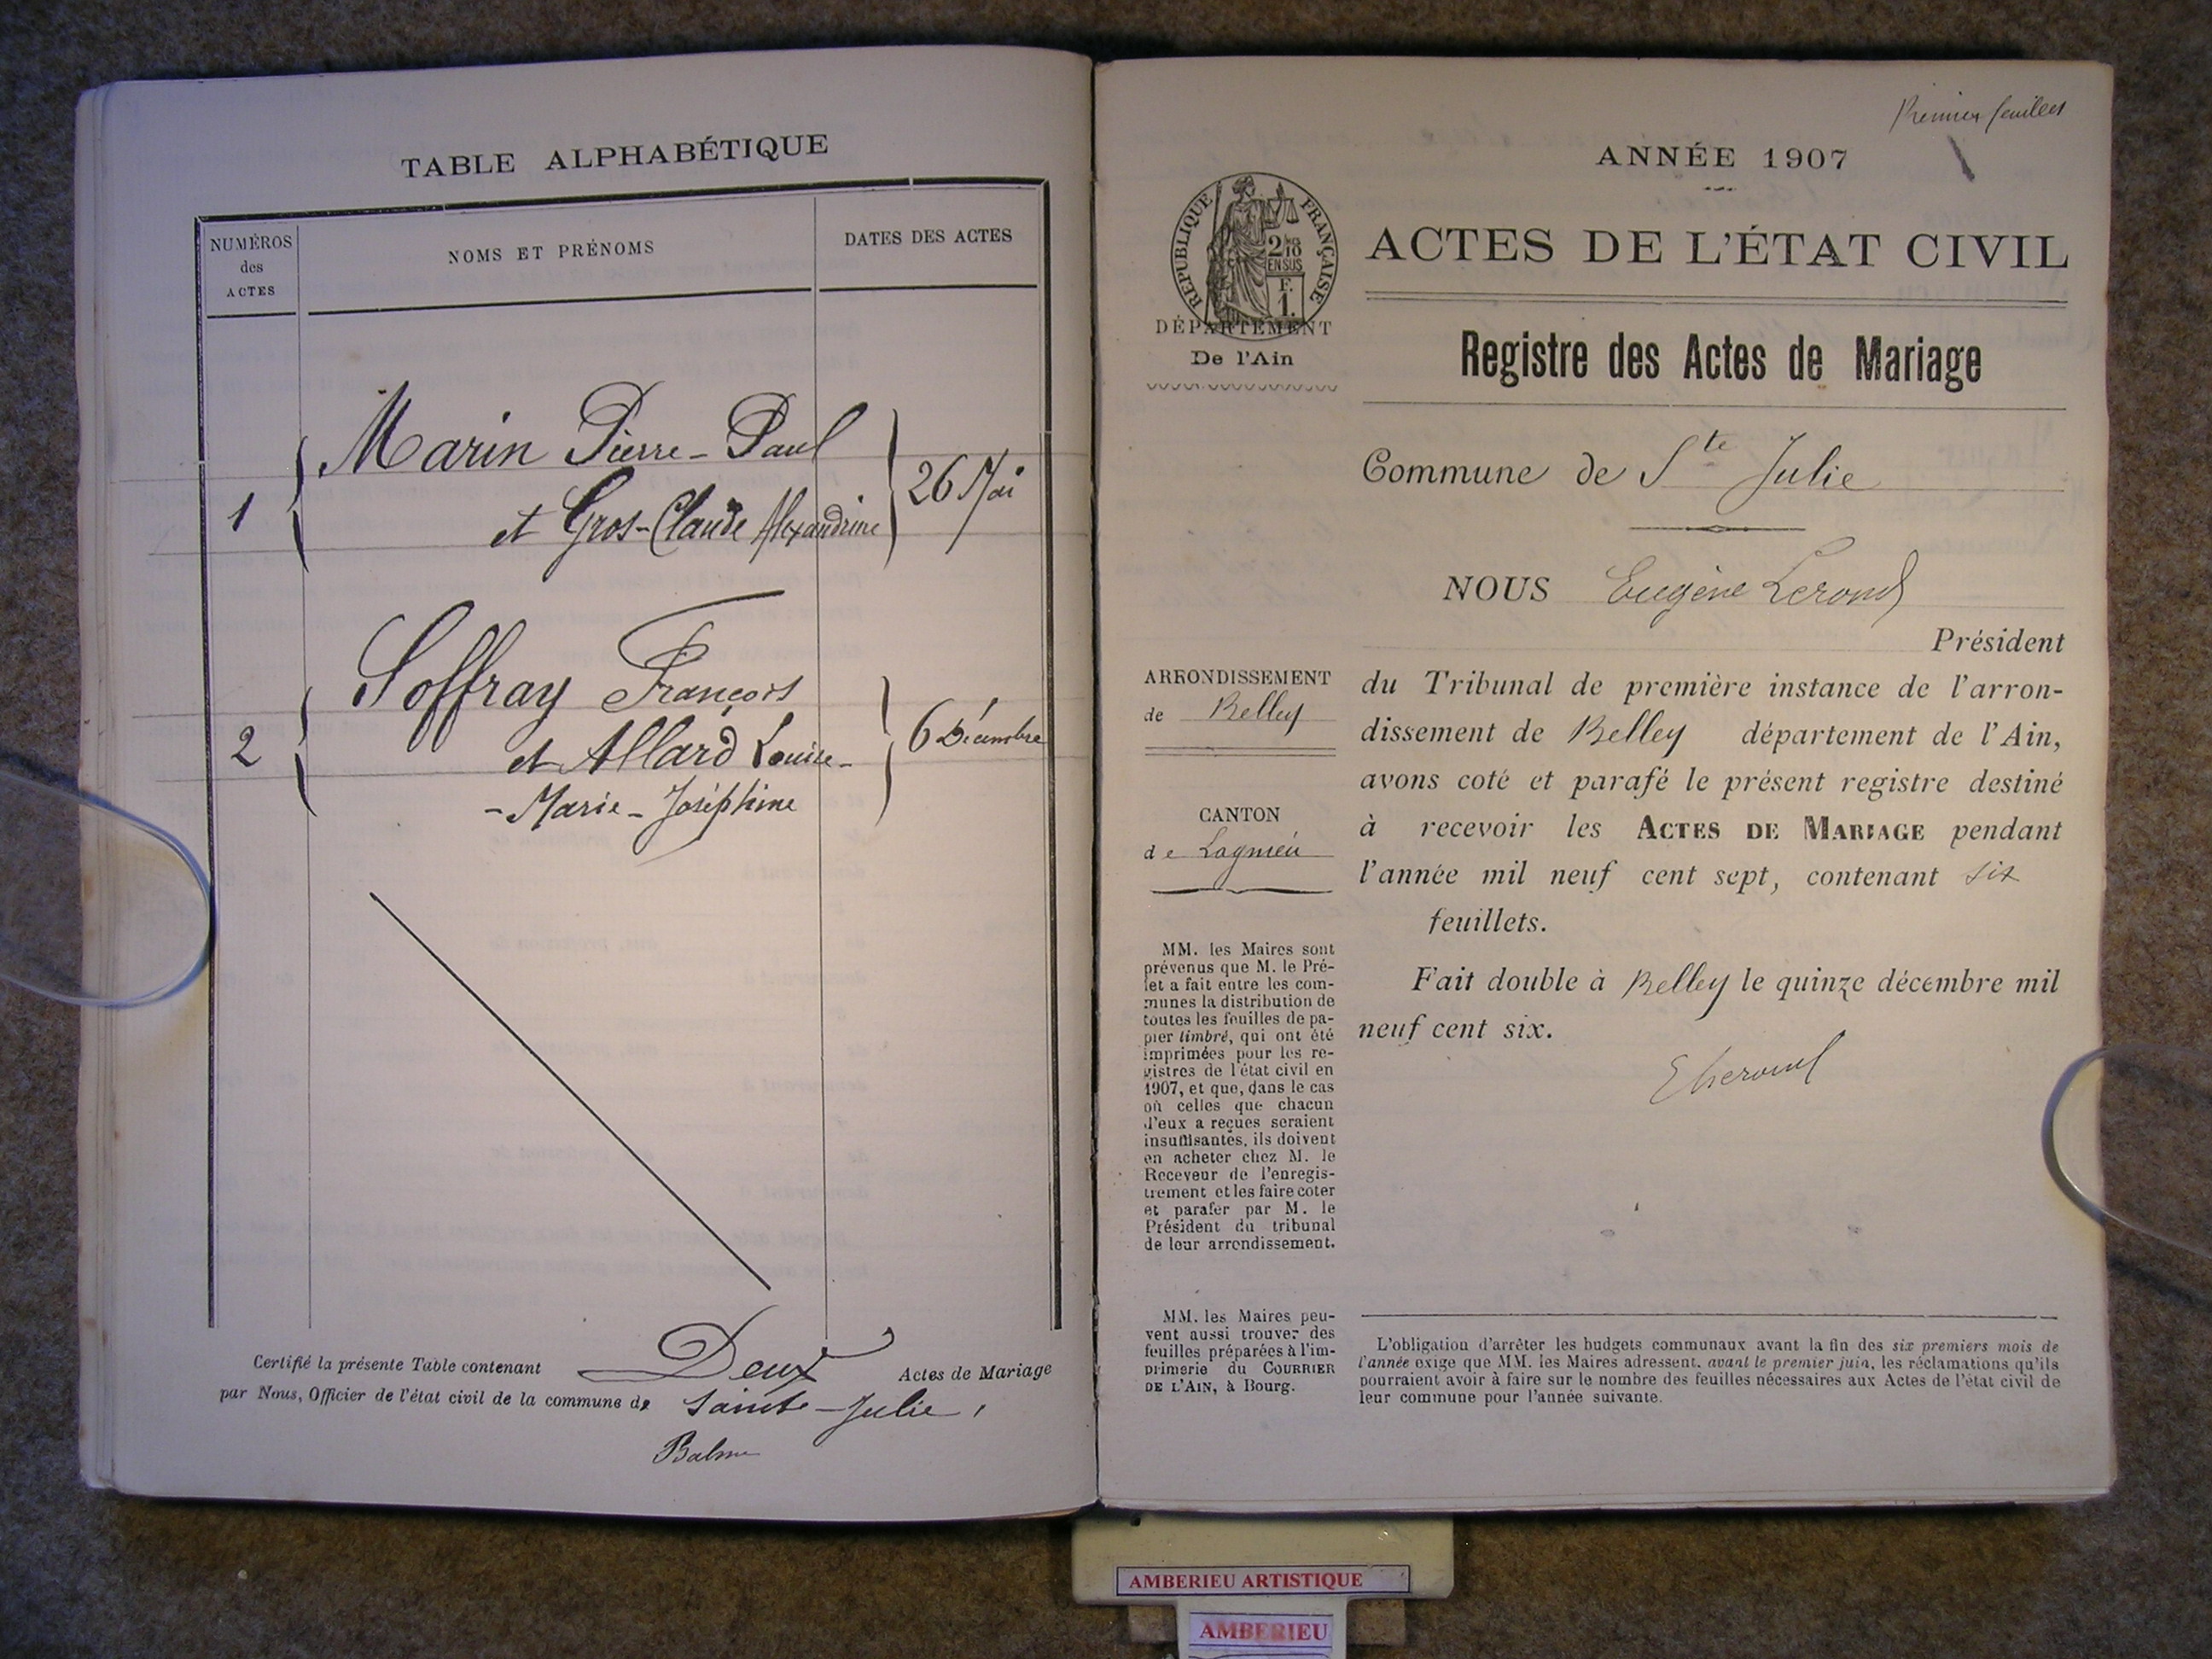 TABLE ALPHABÉTIQUE
NUMÉROS
des
ACTES
NOMS ET PRÉNOMS
DATES DES ACTES
Marin Pierre-Paul
1
et Gros-Claude Alexandrine
26 Mai
Soffray François
2
et Allard Louise-
-Marie-Joséphine
6 Décembre
Certifié la présente Table contenant Deux Actes de Mariage
par Nous, Officier de l'état civil de la commune de Sainte-Julie,
Balme
Premier feuillet
ANNÉE 1907
RÉPUBLIQUE FRANÇAISE
2/10
EN SUS
F.
1.
DÉPARTEMENT
De l'Ain
ACTES DE L'ÉTAT CIVIL
Registre des Actes de Mariage
Commune de Ste Julie
NOUS Eugène Lerond
Président
du Tribunal de première instance de l'arron-
dissement de Belley département de l'Ain,
avons coté et parafé le présent registre destiné
à recevoir les ACTES DE MARIAGE pendant
l'année mil neuf cent sept, contenant six
feuillets.
Fait double à Belley le quinze décembre mil
neuf cent six.
ELerond
ARRONDISSEMENT
de Belley
CANTON
de Lagnieu
MM. les Maires sont
prévenus que M. le Pré-
fet a fait entre les com-
munes la distribution de
toutes les feuilles de pa-
pier timbré, qui ont été
imprimées pour les re-
gistres de l'état civil en
1907, et que, dans le cas
où celles que chacun
d'eux a reçues seraient
insuffisantes, ils doivent
en acheter chez M. le
Receveur de l'enregis-
trement et les faire coter
et parafer par M. le
Président du tribunal
de leur arrondissement.
MM. les Maires peu-
vent aussi trouver des
feuilles préparées à l'im-
primerie du COURRIER
DE L'AIN, à Bourg.
L'obligation d'arrêter les budgets communaux avant la fin des six premiers mois de
l'année exige que MM. les Maires adressent, avant le premier juin, les réclamations qu'ils
pourraient avoir à faire sur le nombre des feuilles nécessaires aux Actes de l'état civil de
leur commune pour l'année suivante.
AMBERIEU ARTISTIQUE
AMBERIEU